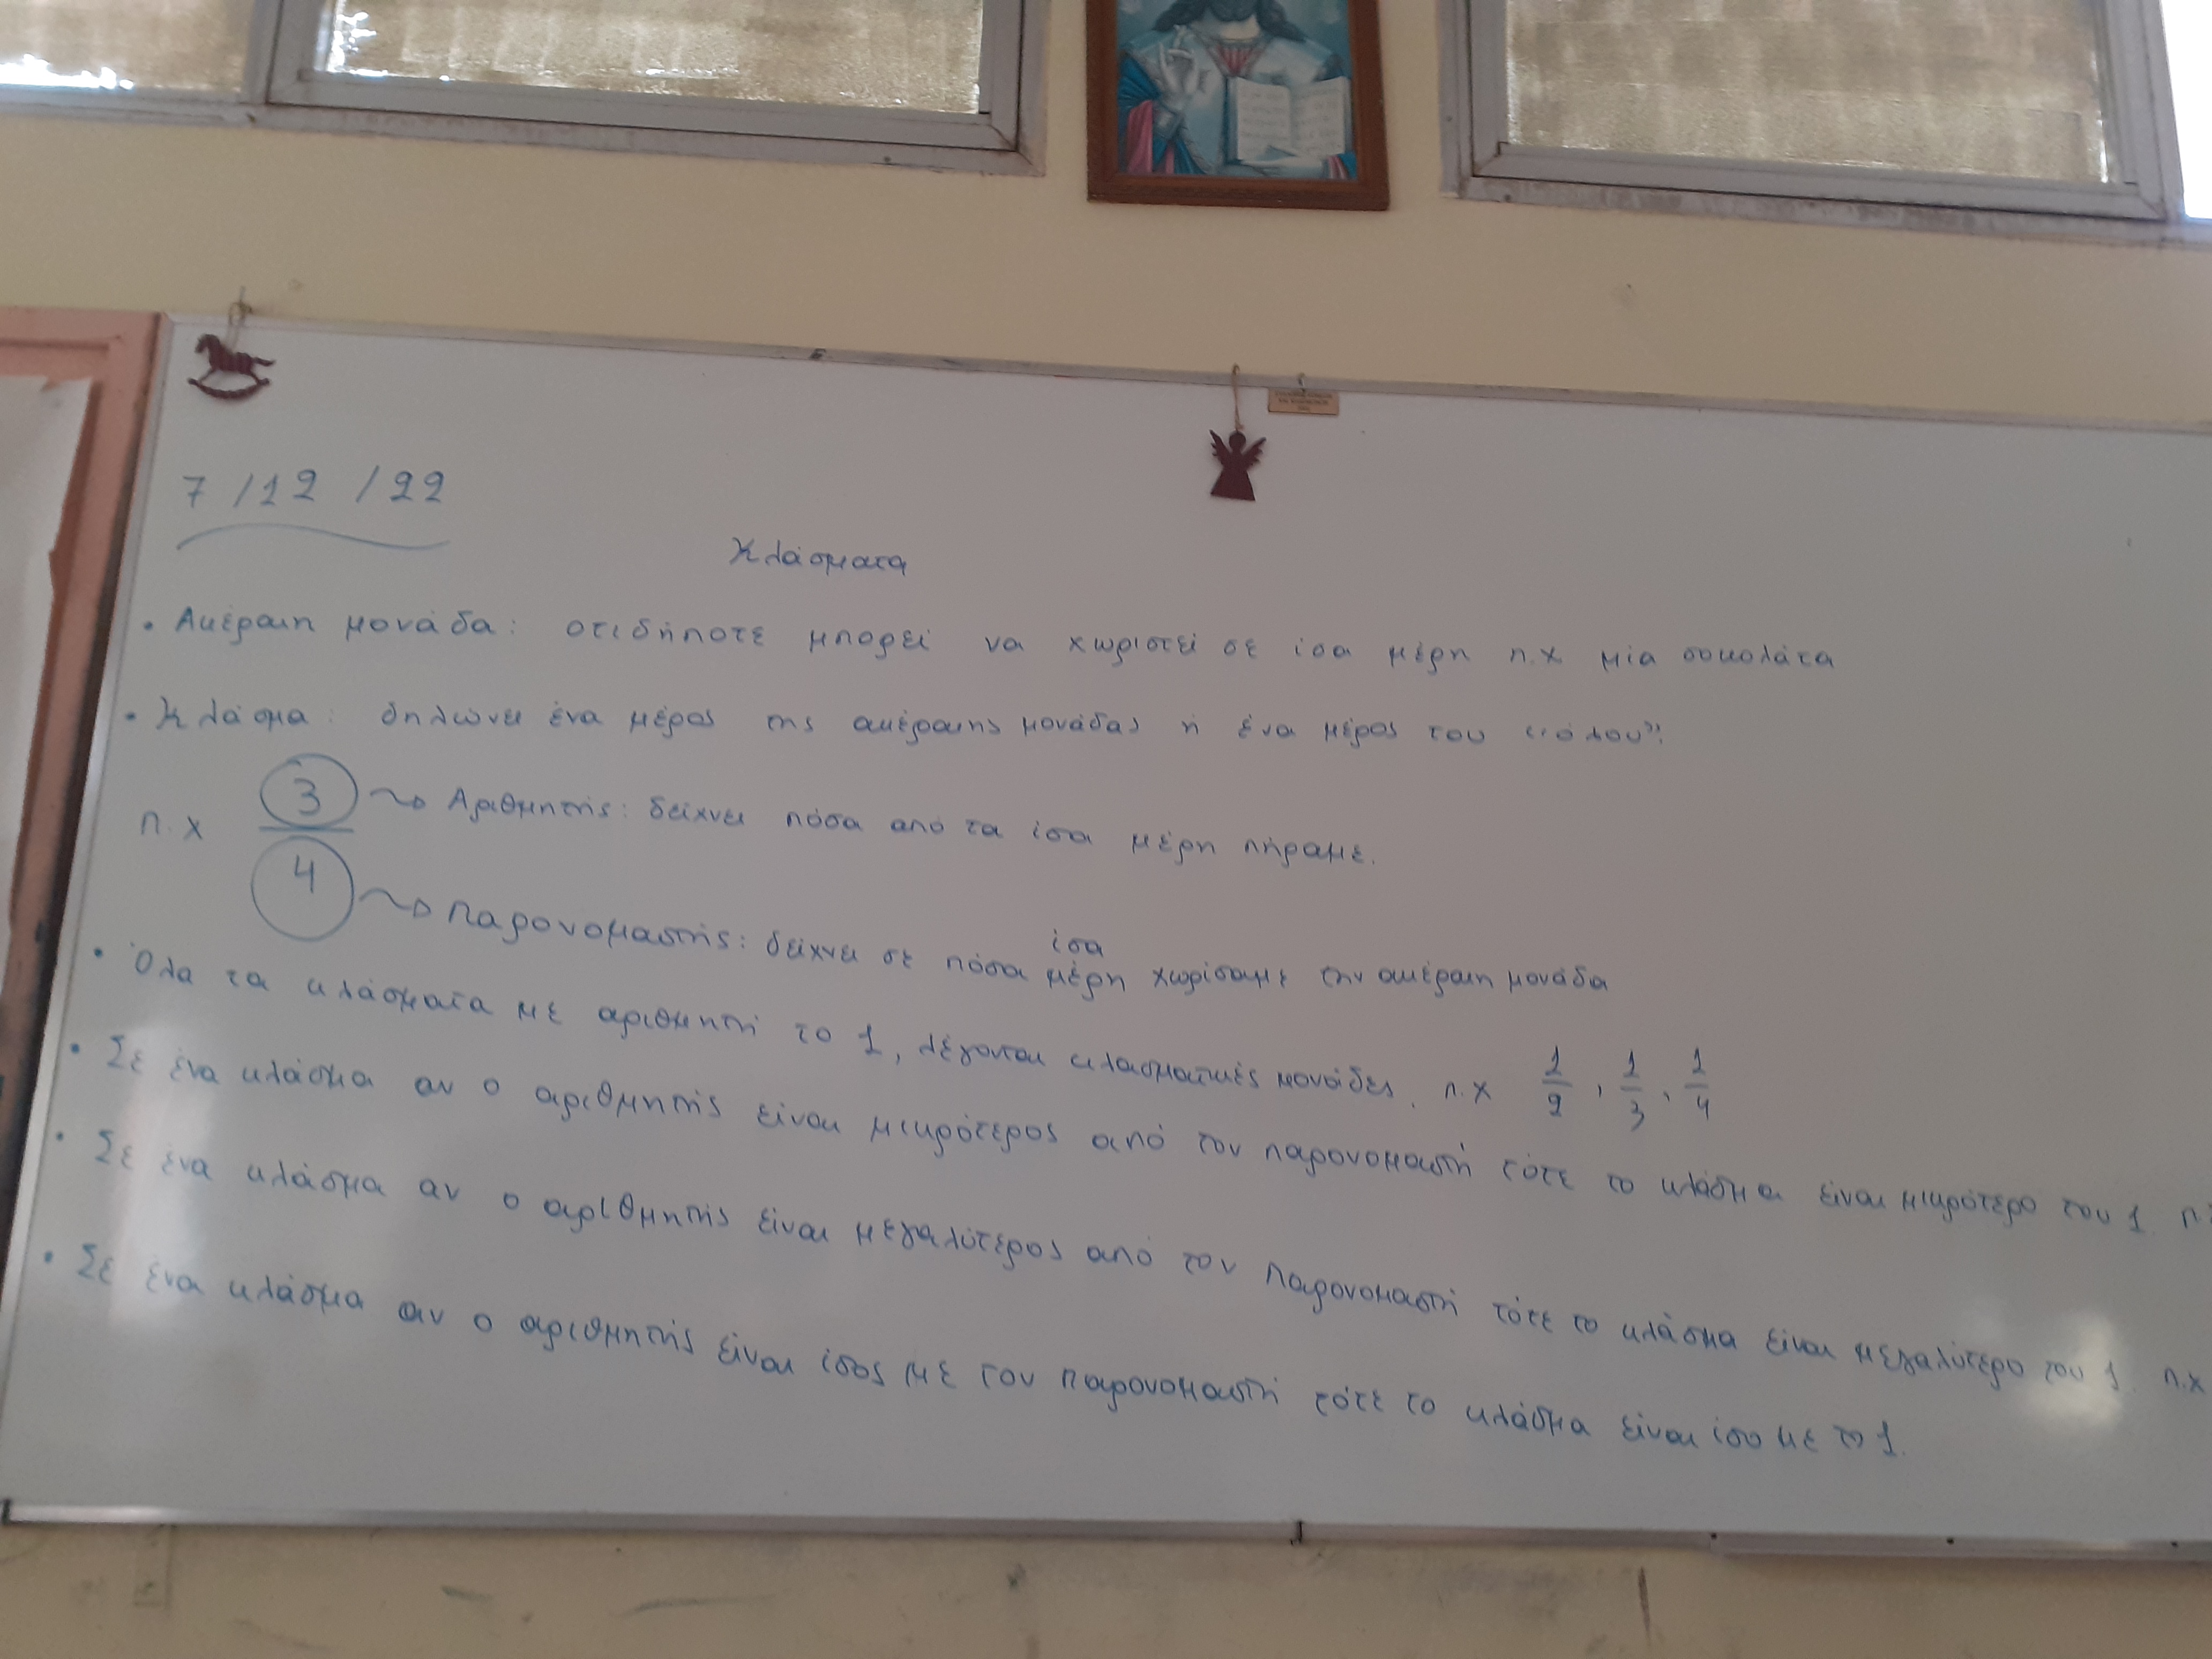 7/12/22
Κλάσματα
• Ακέραιη μονάδα: οτιδήποτε μπορεί να χωριστεί σε ίσα μέρη π.χ μία σοκολάτα
• Κλάσμα: δηλώνει ένα μέρος της ακέραιης μονάδας ή ένα μέρος του «όλου».
π.χ 3/4
3 → Αριθμητής: δείχνει πόσα από τα ίσα μέρη πήραμε.
4 → Παρονομαστής: δείχνει σε πόσα ίσα μέρη χωρίσαμε την ακέραιη μονάδα
• Όλα τα κλάσματα με αριθμητή το 1, λέγονται κλασματικές μονάδες. π.χ 1/2, 1/3, 1/4
• Σε ένα κλάσμα αν ο αριθμητής είναι μικρότερος από τον παρονομαστή τότε το κλάσμα είναι μικρότερο του 1. π.
• Σε ένα κλάσμα αν ο αριθμητής είναι μεγαλύτερος από τον παρονομαστή τότε το κλάσμα είναι μεγαλύτερο του 1. π.χ
• Σε ένα κλάσμα αν ο αριθμητής είναι ίσος με τον παρονομαστή τότε το κλάσμα είναι ίσο με το 1.